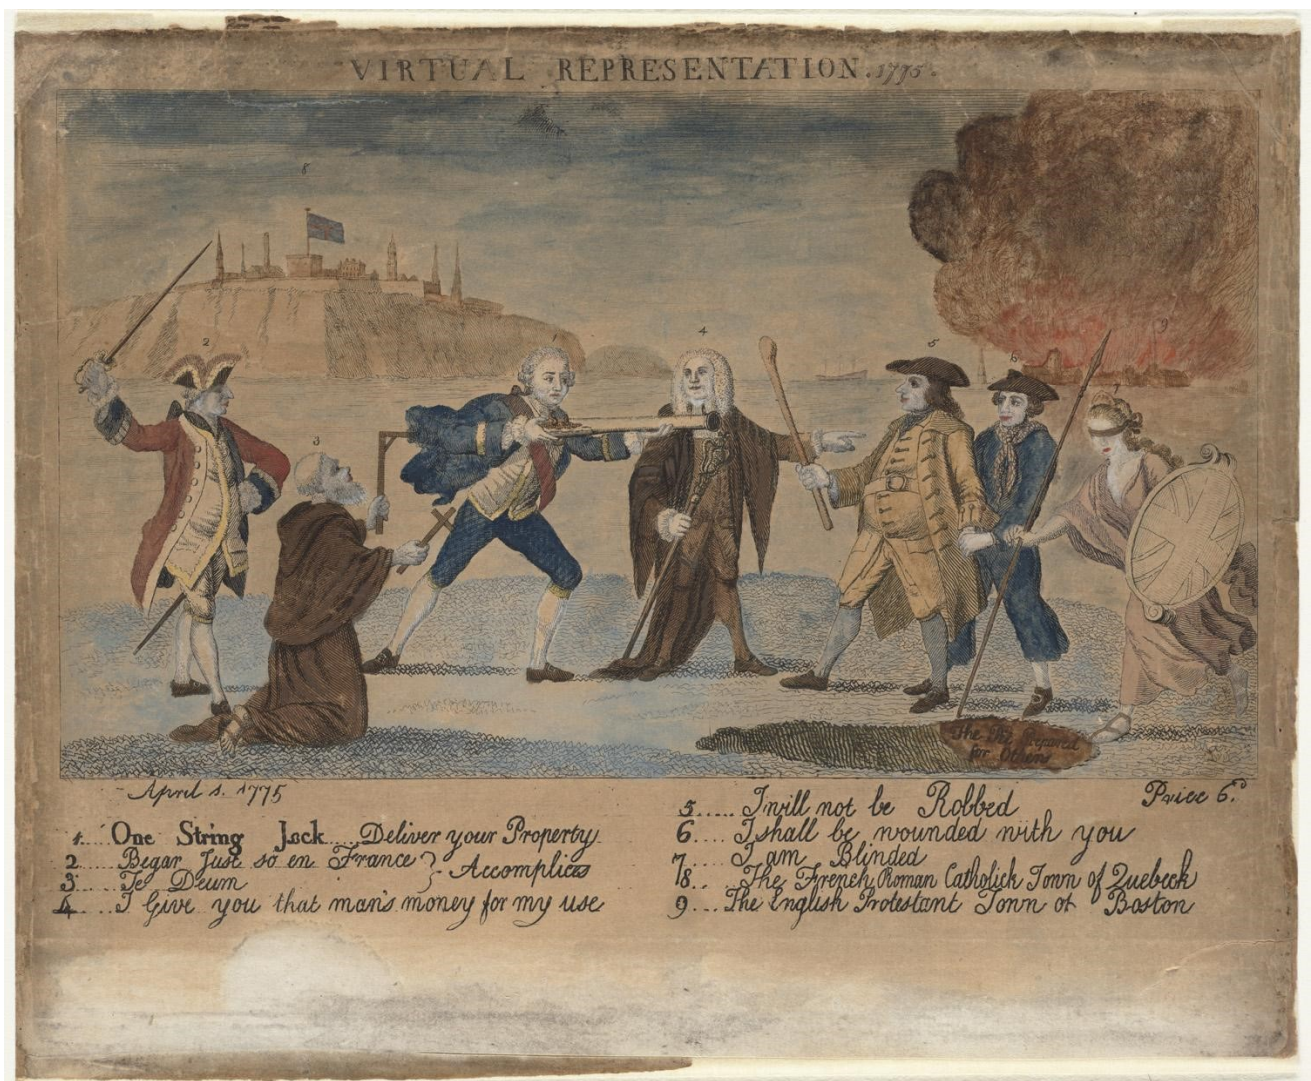 VIRTUAL REPRESENTATION. 1775.
8
9
4
1
5
2
6
7
3
The Pit Prepared
for Others
April 1. 1775
Price 6.d
1.... One String Jack.... Deliver your Property
2.... Begar Just so en France } Accomplices
3.... Te Deum
4.... I Give you that man's money for my use
5.... I will not be Robbed
6.... I shall be wounded with you
7.... I am Blinded
8.. The French Roman Catholick Town of Quebeck
9.... The English Protestant Town of Boston